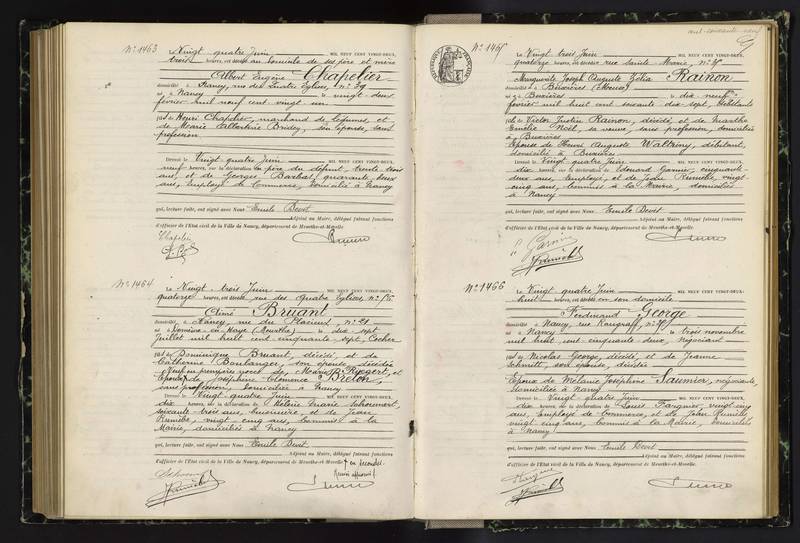 N° 1463
Le Vingt quatre Juin MIL NEUF CENT VINGT-DEUX,
trois heures, est décédé au domicile de ses père et mère
Albert Eugène Chapelier
domicilié à Nancy, rue des Quatre Eglises, n° 39
né à Nancy le vingt deux
février mil neuf cent vingt un
fils de Henri Chapelier, marchand de légumes, et
de Marie Albertine Bridey, son épouse, sans
profession
Dressé le Vingt quatre Juin MIL NEUF CENT VINGT-DEUX,
neuf heures, sur la déclaration du père du défunt, trente trois
ans, et de Georges Barbas, quarante
ans, employé de Commerce, domicilié à Nancy
qui, lecture faite, ont signé avec Nous Emile Devit
Adjoint au Maire, délégué faisant fonctions
d'officier de l'Etat civil de la Ville de Nancy, département de Meurthe-et-Moselle.
Chapelier
N° 1464
Le Vingt trois Juin MIL NEUF CENT VINGT-DEUX,
quatorze heures, est décédé rue des Quatre Eglises, n°
Aimé Bruant
domicilié à Nancy, rue du Placieux, n° 21
né à Domèvre en Haye (Meurthe) le dix sept
Juillet mil huit cent cinquante sept, Cocher
fils de Dominique Bruant, décédé, et de
Catherine Boulanger, son épouse, décédée
Veuf en premières noces de Marie Ringert, et
Epoux de Joséphine Clémence Breton,
sans profession, domiciliée à Nancy
Dressé le Vingt quatre Juin MIL NEUF CENT VINGT-DEUX,
dix heures, sur la déclaration de Hélène Marie
soixante trois ans, et de Jean
Rumèlhe, vingt cinq ans, Commis à la
Mairie, domiciliés à Nancy
qui, lecture faite, ont signé avec Nous Emile Devit
Adjoint au Maire, délégué faisant fonctions
d'officier de l'Etat civil de la Ville de Nancy, département de Meurthe-et-Moselle.
en secondes
Renvoi approuvé
N° 1465
Le Vingt trois Juin MIL NEUF CENT VINGT-DEUX,
quatorze heures, est décédée rue Sainte Marie, n°
Marguerite Joseph Auguste Zélia Rainon
domiciliée à Buxières (Meuse)
née à Buxières le dix neuf
février mil huit cent soixante dix sept,
fille de Victor Justin Rainon, décédé, et de Marthe
Emélie Noël, sa veuve, sans profession, domiciliée
à Buxières
Epouse de Henri Auguste Wattriny, débitant,
domicilié à Buxières
Dressé le Vingt quatre Juin MIL NEUF CENT VINGT-DEUX,
dix heures, sur la déclaration de Edouard Garnier, cinquante-
deux ans, Employé, et de John Rumèlhe, vingt
cinq ans, Commis à la Mairie, domiciliés
à Nancy
qui, lecture faite, ont signé avec Nous Emile Devit
Adjoint au Maire, délégué faisant fonctions
d'officier de l'Etat civil de la Ville de Nancy, département de Meurthe-et-Moselle.
N° 1466
Le Vingt quatre Juin MIL NEUF CENT VINGT-DEUX,
huit heures, est décédé en son domicile
Ferdinand George
domicilié à Nancy, rue
né à Nancy le trois novembre
mil huit cent cinquante deux, négociant
fils de Nicolas George, décédé, et de Jeanne
Schmitt, son épouse, décédée
Epoux de Mélanie Joséphine Saunier, négociante,
domiciliée à Nancy
Dressé le Vingt quatre Juin MIL NEUF CENT VINGT-DEUX,
dix heures, sur la déclaration de Louis vingt cinq
ans, Employé de Commerce, et de John Rumèlhe,
vingt cinq ans, Commis à la Mairie, domiciliés
à Nancy
qui, lecture faite, ont signé avec Nous Emile Devit
Adjoint au Maire, délégué faisant fonctions
d'officier de l'Etat civil de la Ville de Nancy, département de Meurthe-et-Moselle.